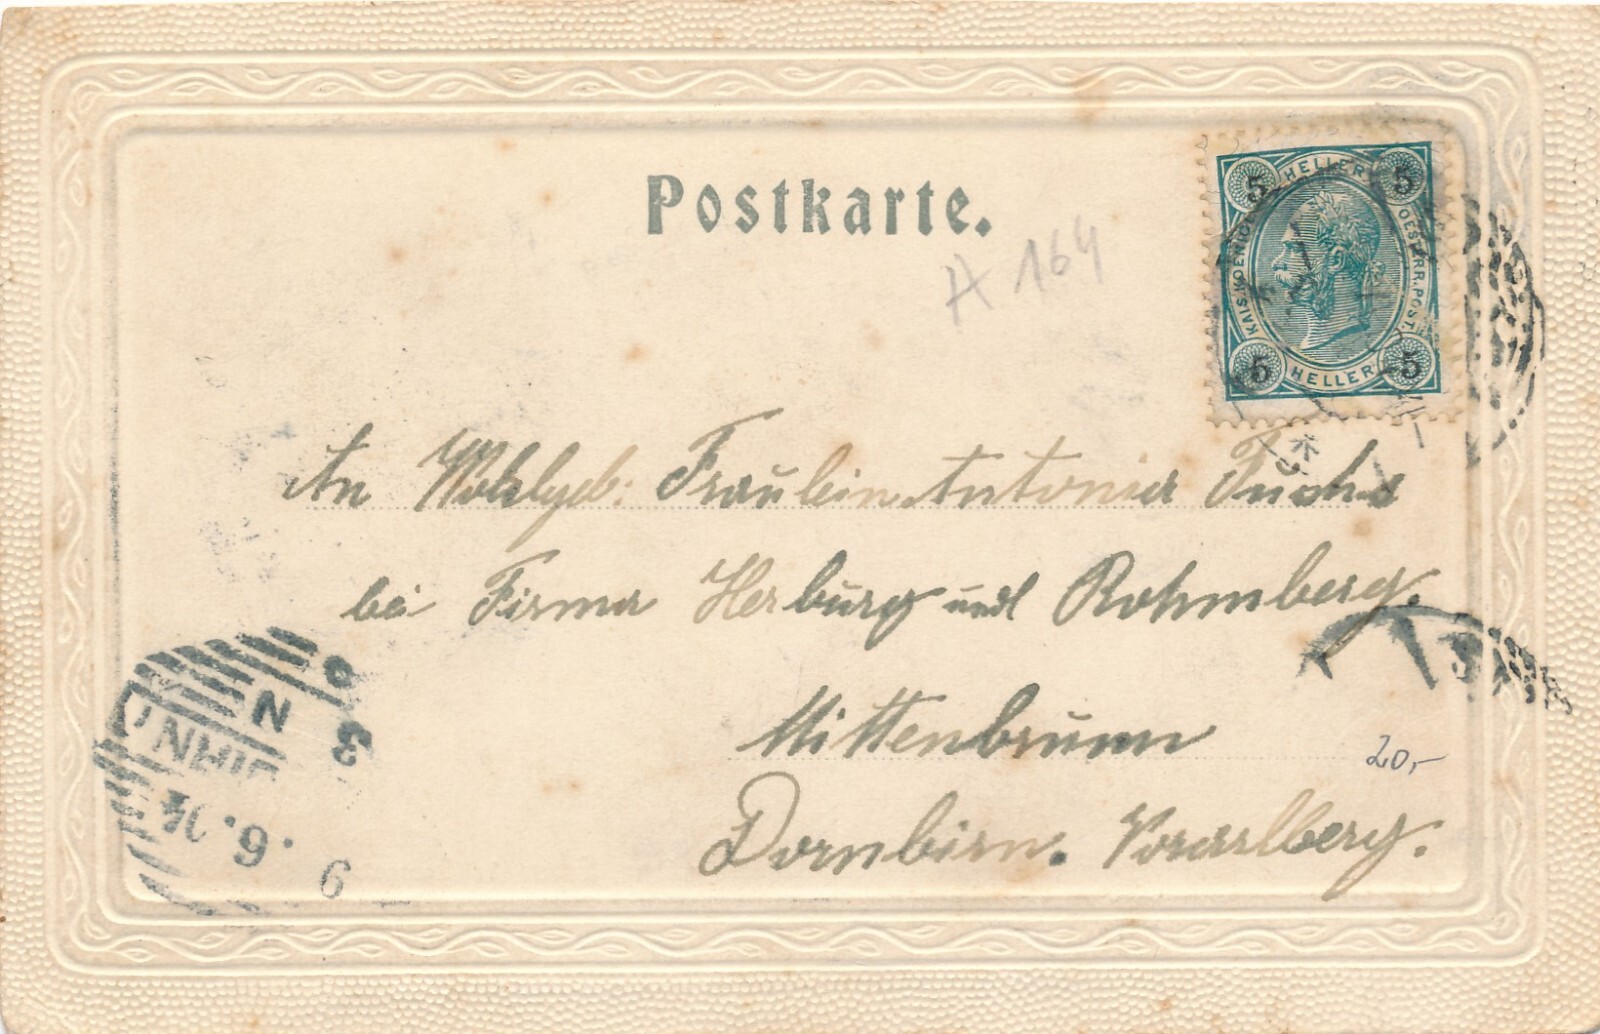 Postkarte.
A 164
5 HELLER 5
KAIS. KOENIGL. OESTERR. POST.
5 HELLER 5
An Wohlgeb: Fräulein Antonia Fuchs
bei Firma Herburg und Rohmberg.
Mittenbrunn
20,-
Dornbirn. Vorarlberg.
3 N
9.6.04